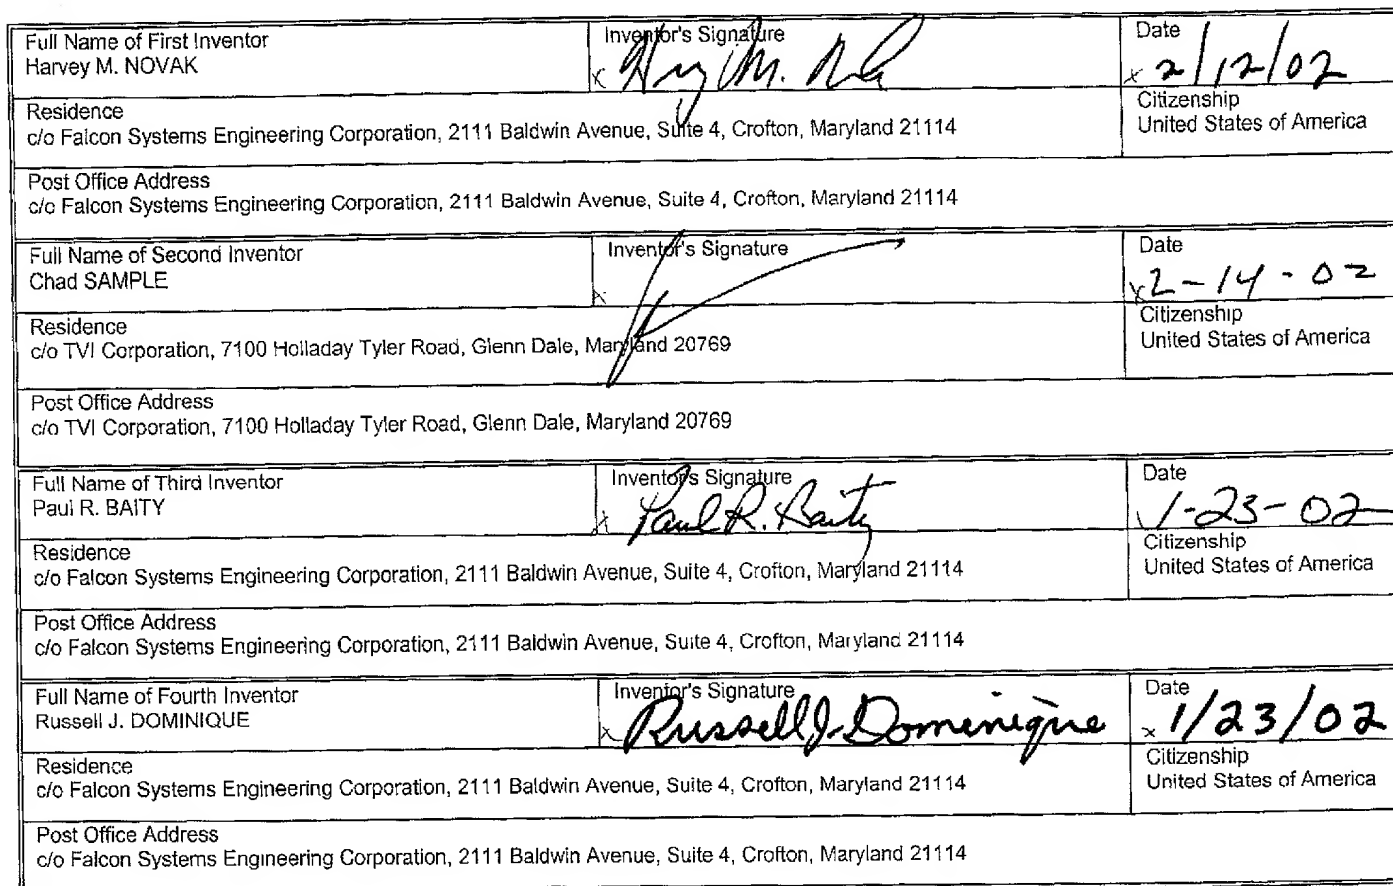 Full Name of First Inventor
Harvey M. NOVAK
Inventor's Signature
x
Date
x 2/12/02
Residence
c/o Falcon Systems Engineering Corporation, 2111 Baldwin Avenue, Suite 4, Crofton, Maryland 21114
Citizenship
United States of America
Post Office Address
c/o Falcon Systems Engineering Corporation, 2111 Baldwin Avenue, Suite 4, Crofton, Maryland 21114
Full Name of Second Inventor
Chad SAMPLE
Inventor's Signature
x
Date
x 2-14-02
Residence
c/o TVI Corporation, 7100 Holladay Tyler Road, Glenn Dale, Maryland 20769
Citizenship
United States of America
Post Office Address
c/o TVI Corporation, 7100 Holladay Tyler Road, Glenn Dale, Maryland 20769
Full Name of Third Inventor
Paul R. BAITY
Inventor's Signature
x Paul R. Baity
Date
1-23-02
Residence
c/o Falcon Systems Engineering Corporation, 2111 Baldwin Avenue, Suite 4, Crofton, Maryland 21114
Citizenship
United States of America
Post Office Address
c/o Falcon Systems Engineering Corporation, 2111 Baldwin Avenue, Suite 4, Crofton, Maryland 21114
Full Name of Fourth Inventor
Russell J. DOMINIQUE
Inventor's Signature
x Russell J. Dominique
Date
x 1/23/02
Residence
c/o Falcon Systems Engineering Corporation, 2111 Baldwin Avenue, Suite 4, Crofton, Maryland 21114
Citizenship
United States of America
Post Office Address
c/o Falcon Systems Engineering Corporation, 2111 Baldwin Avenue, Suite 4, Crofton, Maryland 21114